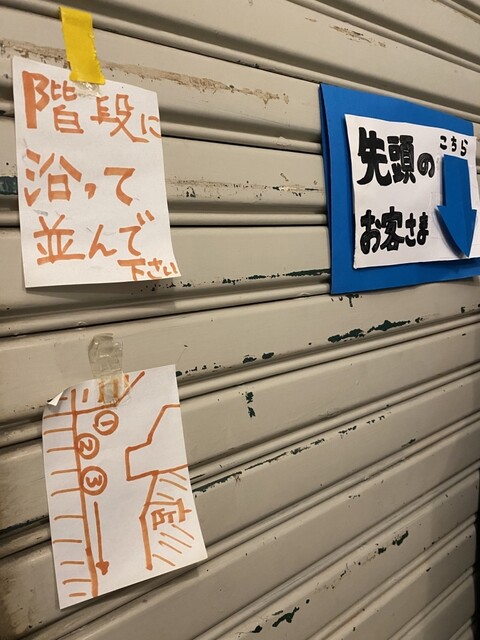 階段に
沿って
並んで
下さい
こちら
先頭の
お客さま
①
②
③
店